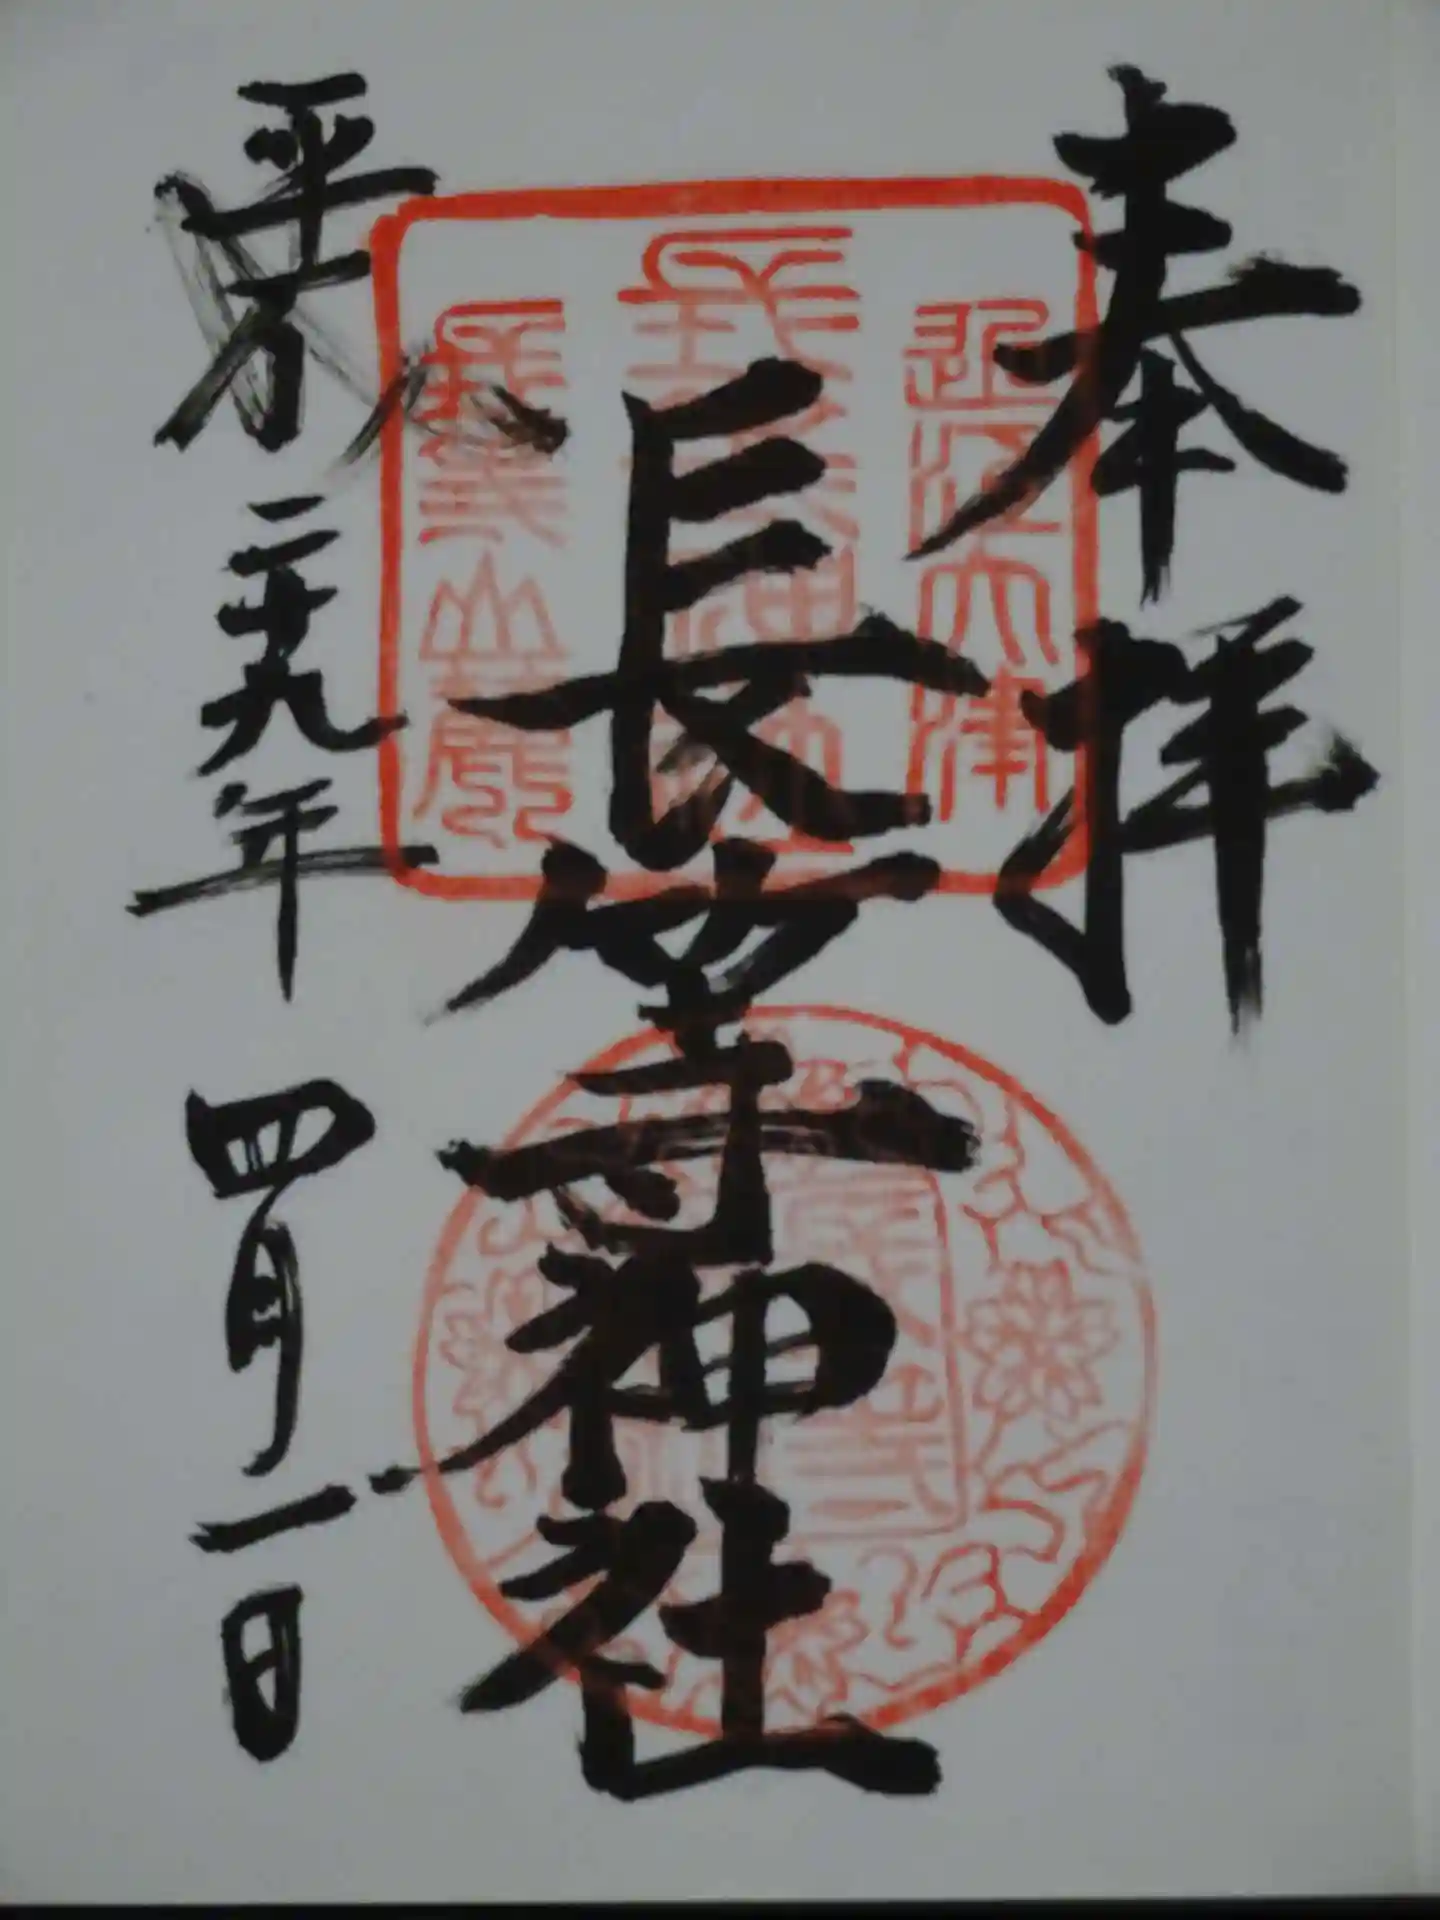 奉拝
近江大津
長等神社
長等山麓
平成二十九年四月一日